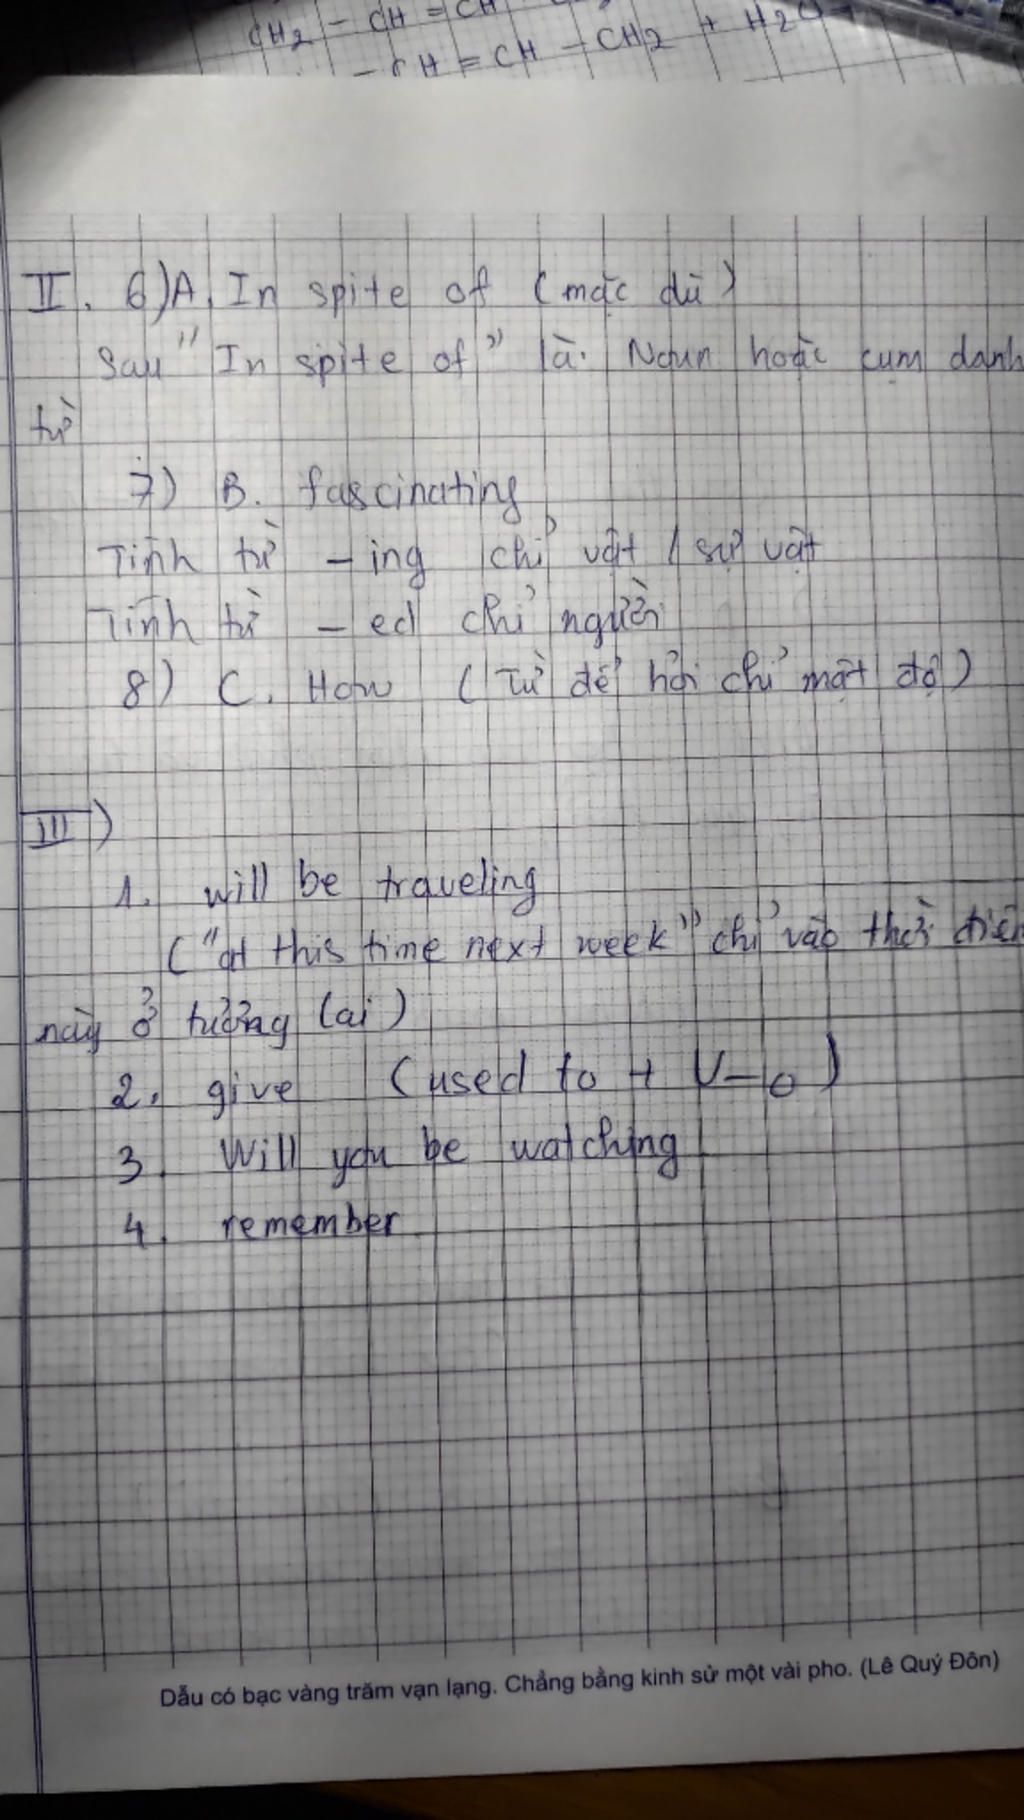 CH2 - CH = CH
- CH = CH - CH2 + H2O
II. 6) A. In spite of (mặc dù)
Sau "In spite of" là Noun hoặc cụm danh
từ
7) B. fascinating
Tính từ -ing chỉ vật / sự vật
Tính từ -ed chỉ người
8) C. How (Từ để hỏi chỉ mật độ)
III)
1. will be traveling
("at this time next week" chỉ vào thời điểm
này ở tương lai)
2. give (used to + V-o)
3. Will you be watching
4. remember
Dẫu có bạc vàng trăm vạn lạng. Chẳng bằng kinh sử một vài pho. (Lê Quý Đôn)